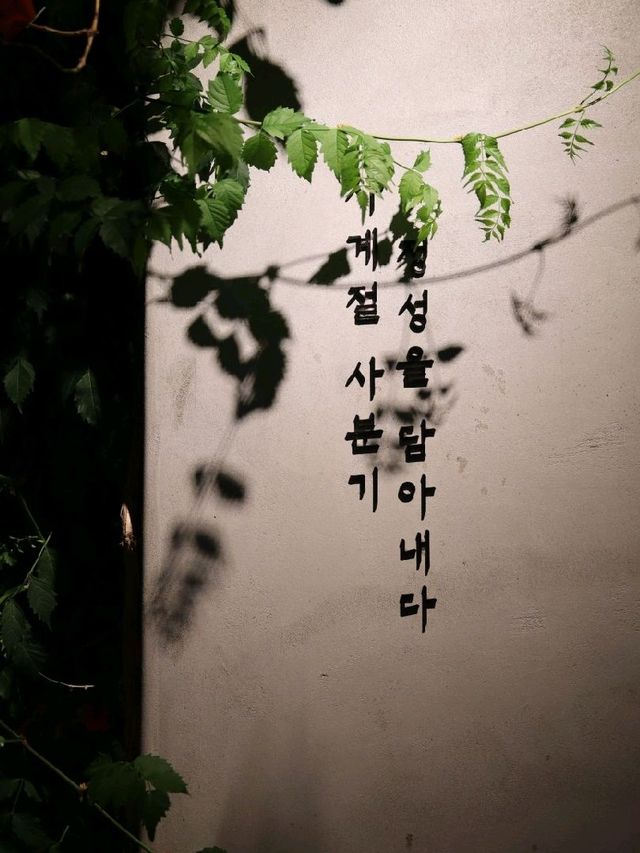 정성을 담아내다
계절 사분기